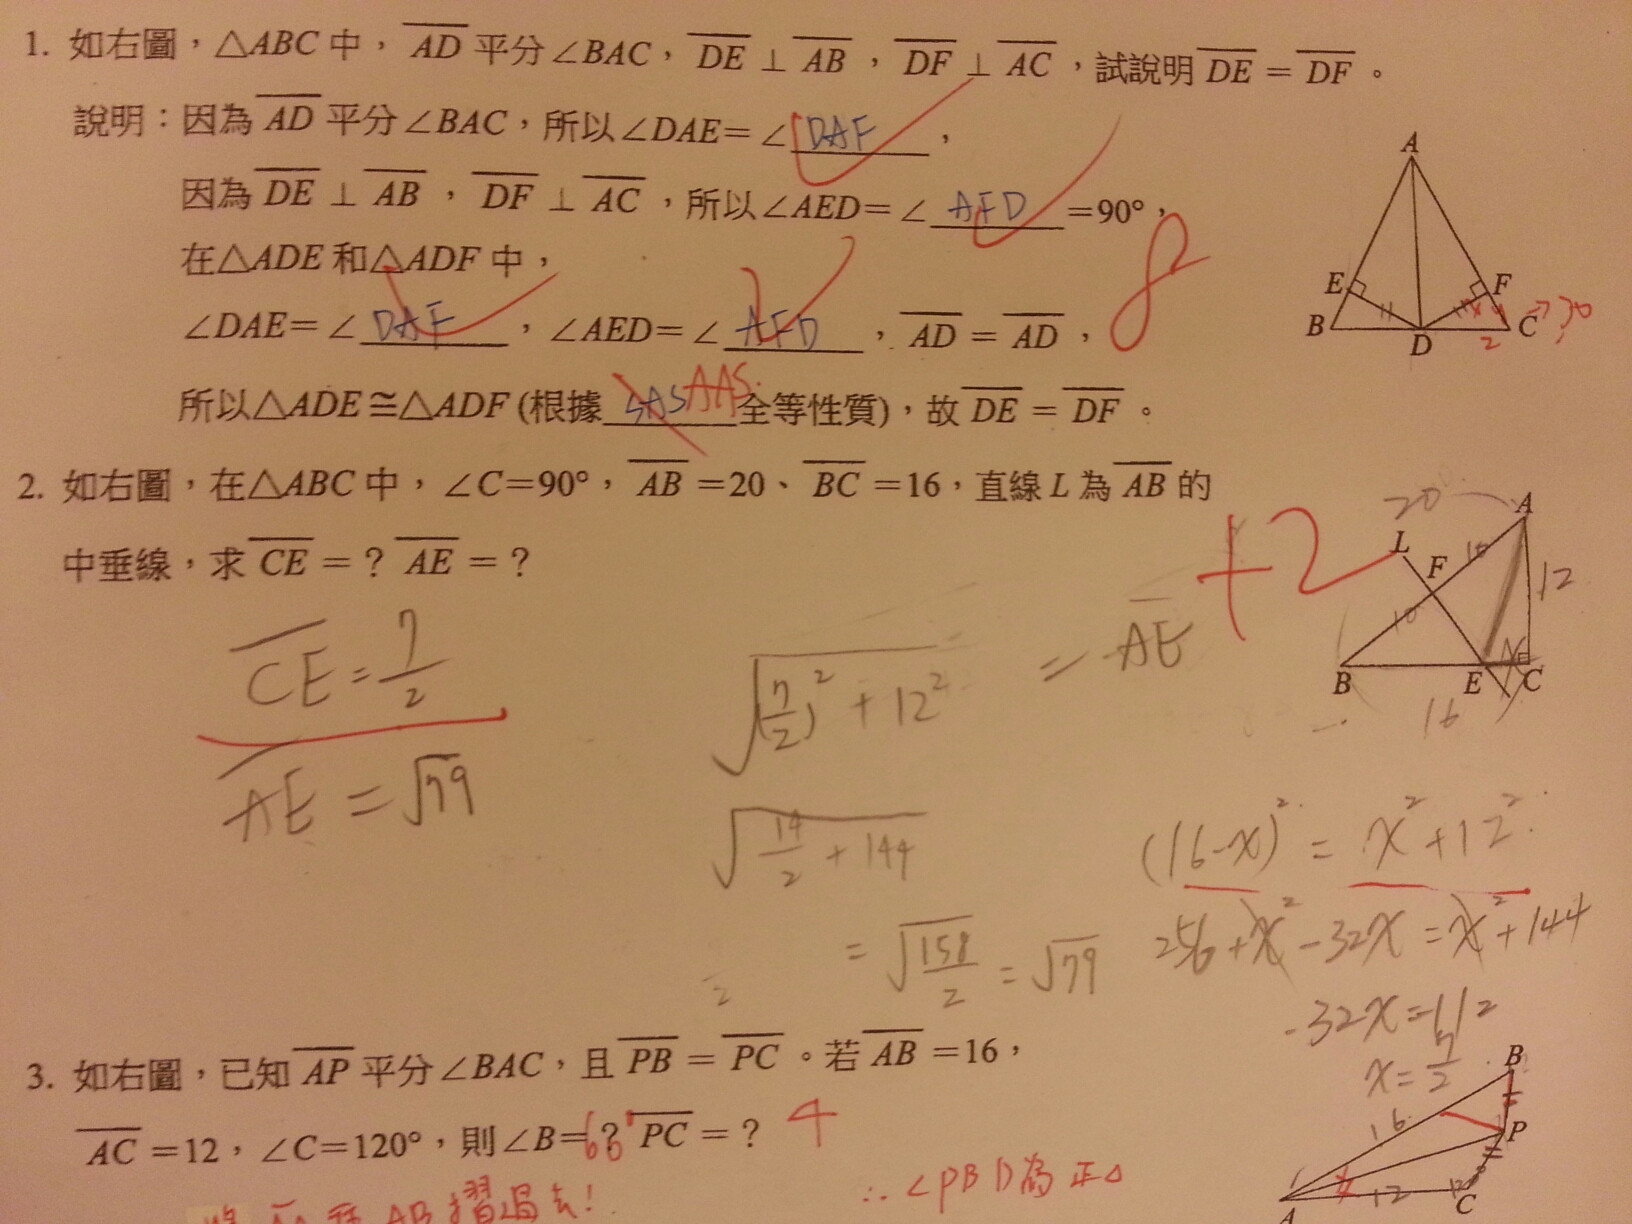 1. 如右圖，△ABC 中，AD 平分∠BAC，DE⊥AB，DF⊥AC，試說明DE=DF。
說明：因為 AD 平分∠BAC，所以∠DAE=∠DAF，
因為 DE⊥AB，DF⊥AC，所以∠AED=∠AFD=90°，
在△ADE 和△ADF 中，
∠DAE=∠DAF，∠AED=∠AFD，AD=AD，
所以△ADE≅△ADF (根據SAS AAS全等性質)，故 DE=DF。
8
A
E
F
B
D
C
2
2. 如右圖，在△ABC 中，∠C=90°，AB=20、BC=16，直線 L 為 AB 的
中垂線，求 CE=？AE=？
+2
20
A
L
F
10
12
10
B
E
C
16
CE=7/2
AE=√79
√((7/2)²+12²) =AE
√(14/2+144)
=√(158/2)=√79
(16-x)²=x²+12²
256+x²-32x=x²+144
-32x=112
x=7/2
3. 如右圖，已知 AP 平分∠BAC，且 PB=PC。若 AB=16，
AC=12，∠C=120°，則∠B=？60° PC=？4
∴∠PBD為正△
AB摺過去!
B
16
P
A
12
C